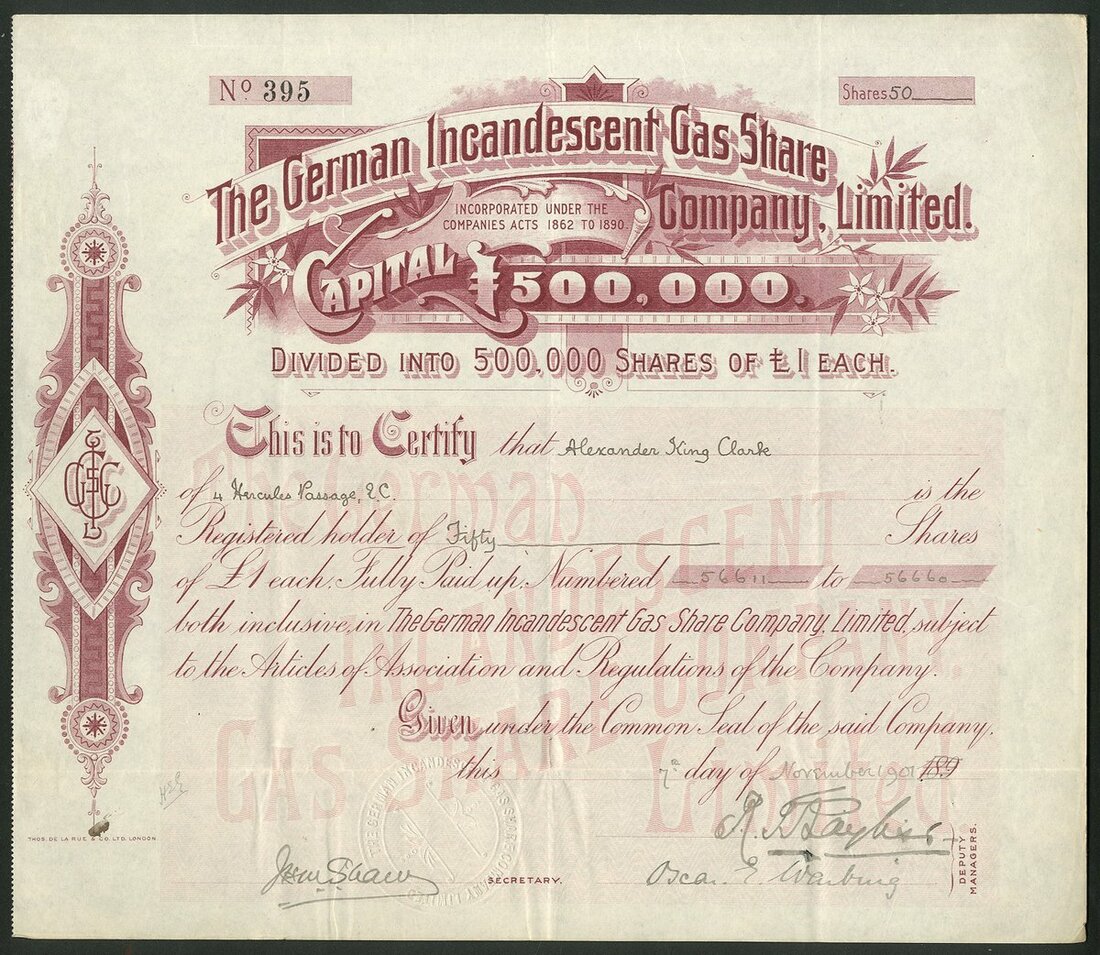 No. 395
Shares 50
The German Incandescent Gas Share
Company, Limited.
INCORPORATED UNDER THE
COMPANIES ACTS 1862 TO 1890.
CAPITAL £500,000.
DIVIDED INTO 500,000 SHARES OF £1 EACH.
This is to Certify that Alexander King Clark
of 4 Hercules Passage, E.C. is the
Registered holder of Fifty Shares
of £1 each. Fully Paid up, Numbered 56611 to 56660
both inclusive, in The German Incandescent Gas Share Company, Limited, subject
to the Articles of Association and Regulations of the Company.
Given under the Common Seal of the said Company.
this 7th day of November 1901 189
THOS. DE LA RUE & CO. LTD. LONDON
Shaw
SECRETARY.
Oscar E. Warburg
DEPUTY
MANAGERS.
The German
INCANDESCENT
GAS SHARE COMPANY.
Limited
THE GERMAN INCANDESCENT GAS SHARE COMPANY LIMITED